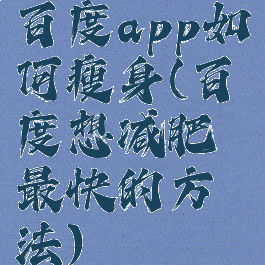 百度app如
何瘦身(百
度想减肥
最快的方
法)